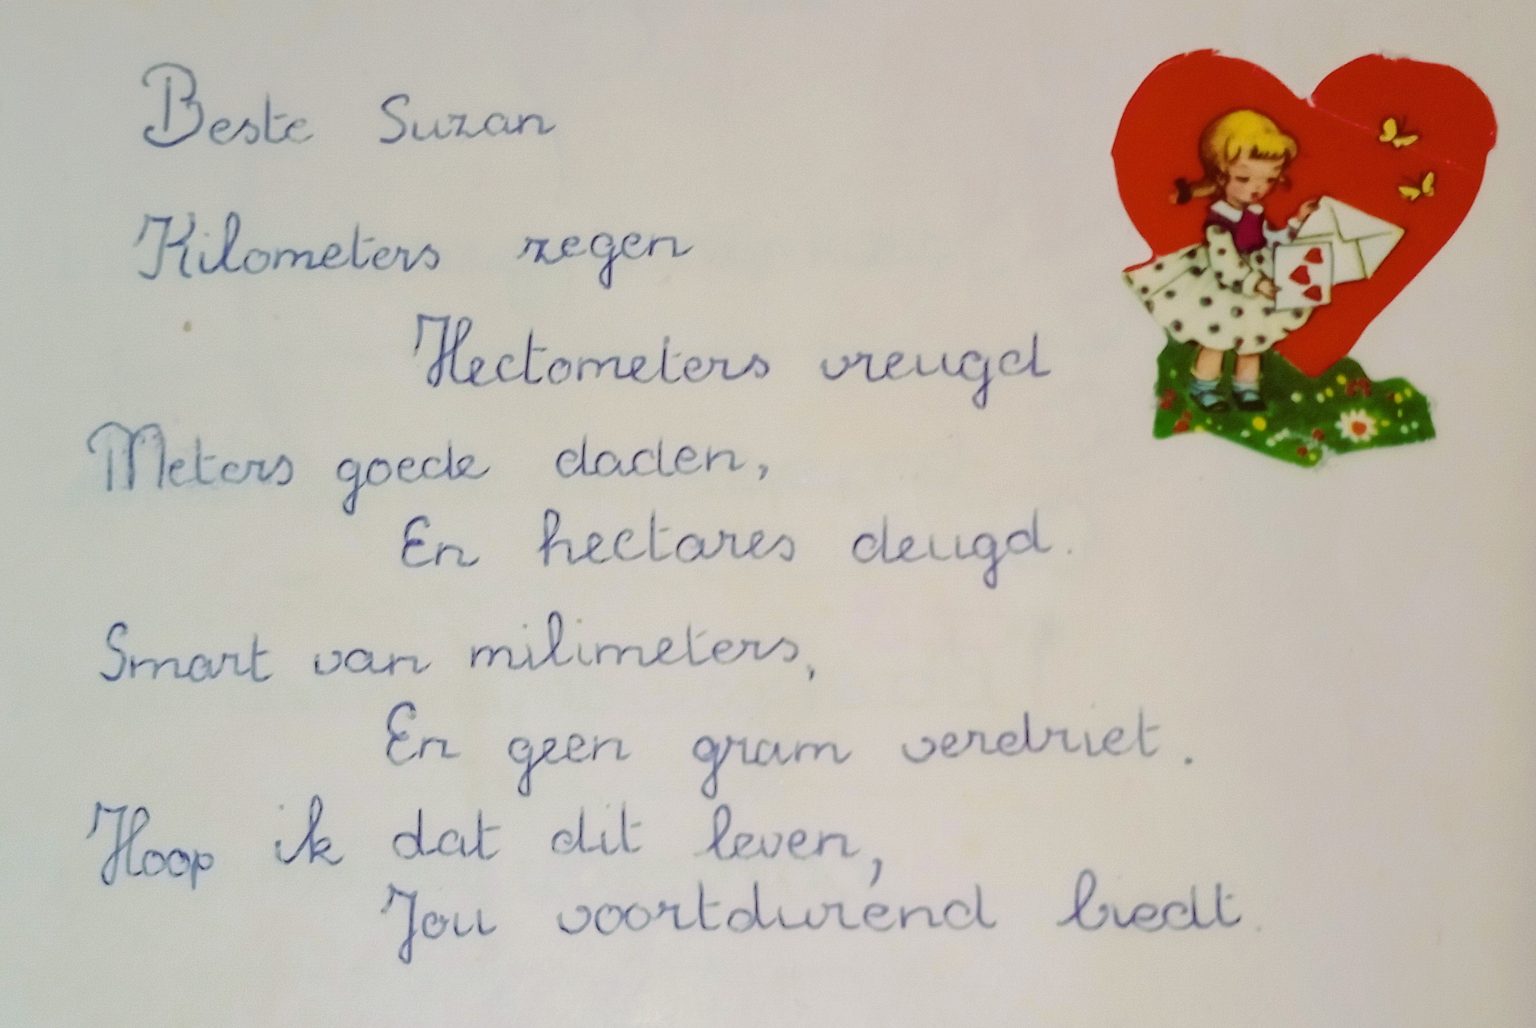 Beste Suzan
Kilometers zegen
Hectometers vreugd
Meters goede daden,
En hectares deugd.
Smart van milimeters,
En geen gram verdriet.
Hoop ik dat dit leven,
Jou voortdurend biedt.